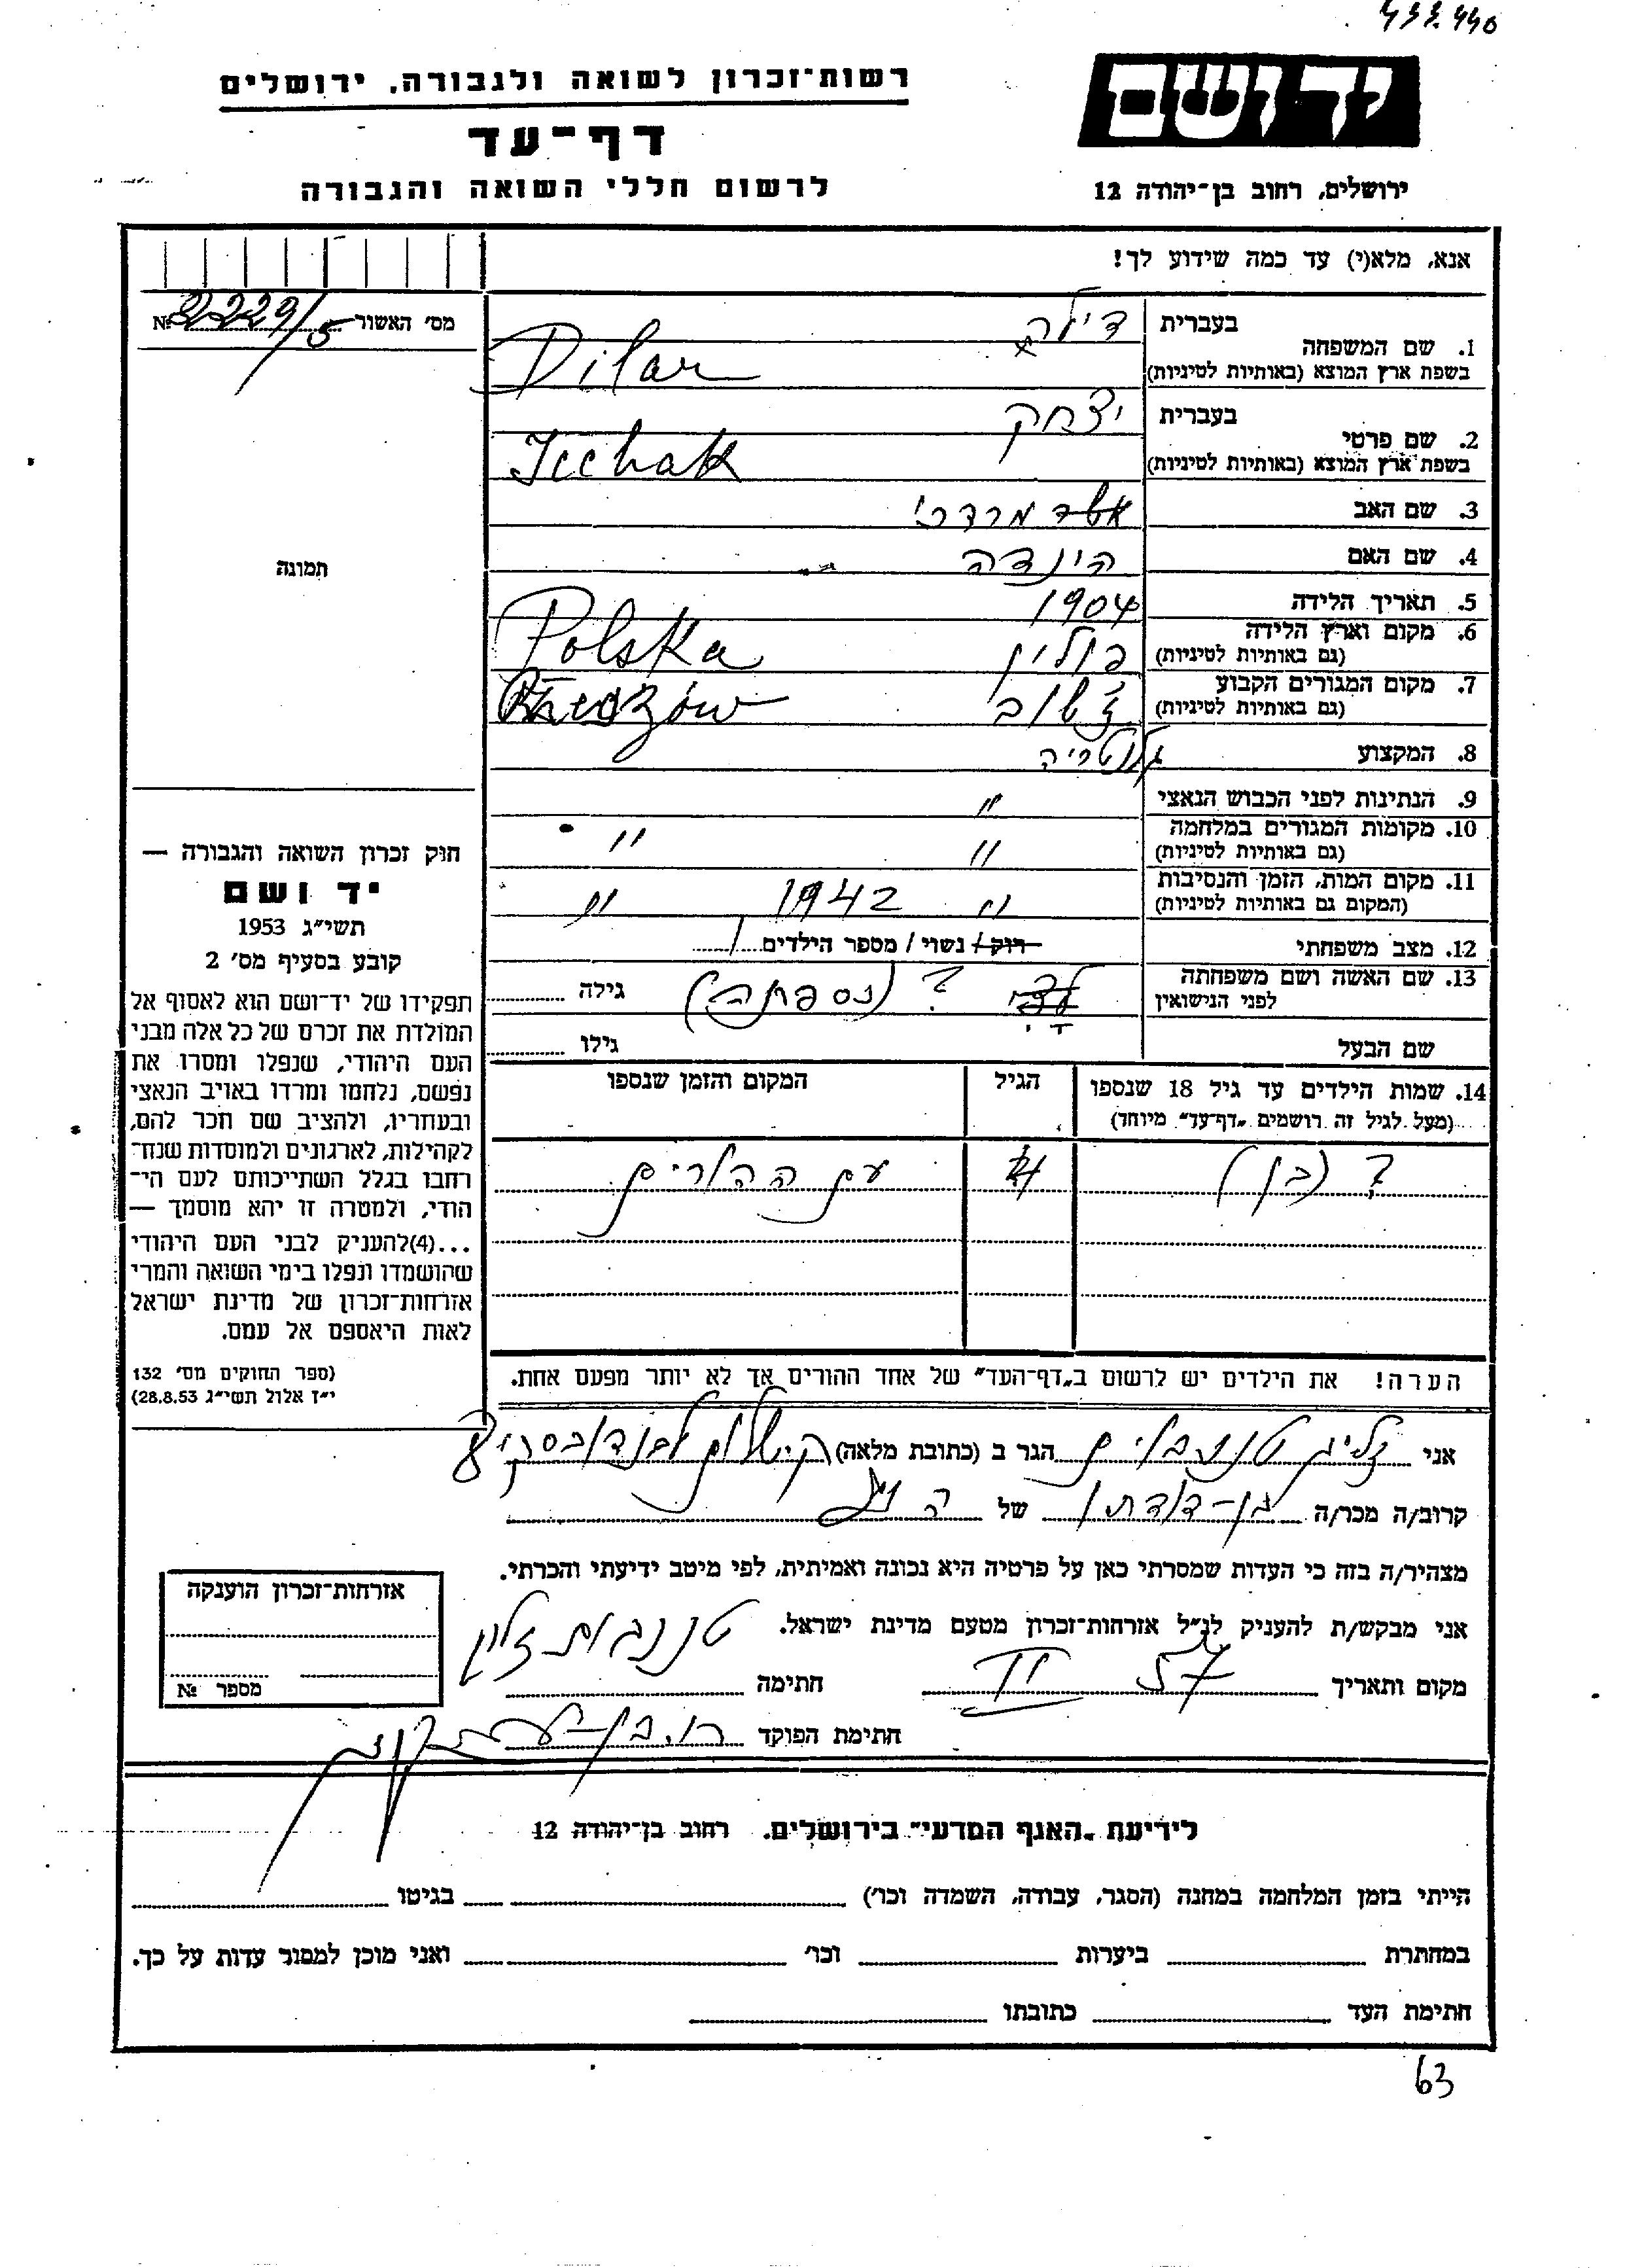 רשות־זכרון לשואה ולגבורה, ירושלים
דף-עד
לרשום חללי השואה והגבורה
יד ושם
ירושלים, רחוב בן־יהודה 12
אנא, מלא(י) עד כמה שידוע לך!
מס׳ האשור № 2229/5
תמונה
1. שם המשפחה
בעברית
בשפת ארץ המוצא (באותיות לטיניות) Dilar
2. שם פרטי
בעברית יצחק
בשפת ארץ המוצא (באותיות לטיניות) Icchak
3. שם האב אשר מרדכי
4. שם האם הינדה
5. תאריך הלידה 1904
6. מקום וארץ הלידה פולין Polska
(גם באותיות לטיניות)
7. מקום המגורים הקבוע
(גם באותיות לטיניות)
8. המקצוע
9. הנתינות לפני הכבוש הנאצי "
10. מקומות המגורים במלחמה " "
(גם באותיות לטיניות)
11. מקום המות, הזמן והנסיבות " 1942 "
(המקום גם באותיות לטיניות)
12. מצב משפחתי רוק / נשוי / מספר הילדים 1
13. שם האשה ושם משפחתה ? (נספתה) גילה
לפני הנישואין
שם הבעל גילו
14. שמות הילדים עד גיל 18 שנספו
(מעל לגיל זה רושמים "דף־עד" מיוחד)
הגיל
המקום והזמן שנספו
? (בן) עם ההורים
חוק זכרון השואה והגבורה —
יד ושם
תשי״ג 1953
קובע בסעיף מס׳ 2
תפקידו של יד־ושם הוא לאסוף אל
המולדת את זכרם של כל אלה מבני
העם היהודי, שנפלו ומסרו את
נפשם, נלחמו ומרדו באויב הנאצי
ובעוזריו, ולהציב שם וזכר להם,
לקהילות, לארגונים ולמוסדות שנח־
רחבו בגלל השתייכותם לעם הי־
הודי, ולמטרה זו יהא מוסמך —
...(4)להעניק לבני העם היהודי
שהושמדו ונפלו בימי השואה והמרי
אזרחות־זכרון של מדינת ישראל
לאות היאספם אל עמם.
(ספר החוקים מס׳ 132
י״ז אלול תשי״ג 28.8.53)
הערה! את הילדים יש לרשום ב„דף־העד״ של אחד ההורים אך לא יותר מפעם אחת.
אני זליג טננבוים הגר ב (כתובת מלאה)
קרוב/ה מכר/ה בן-דודתו של הנ״ל
מצהיר/ה בזה כי העדות שמסרתי כאן על פרטיה היא נכונה ואמיתית, לפי מיטב ידיעתי והכרתי.
אני מבקש/ת להעניק לנ״ל אזרחות־זכרון מטעם מדינת ישראל.
מקום ותאריך 57 II חתימה
חתימת הפוקד
אזרחות־זכרון הוענקה
מספר №
לידיעת „האגף המדעי״ בירושלים. רחוב בן־יהודה 12
הייתי בזמן המלחמה במחנה (הסגר, עבודה, השמדה וכו׳) בגיטו
במחתרת ביערות וכו׳ ואני מוכן למסור עדות על כך.
חתימת העד כתובתו
63